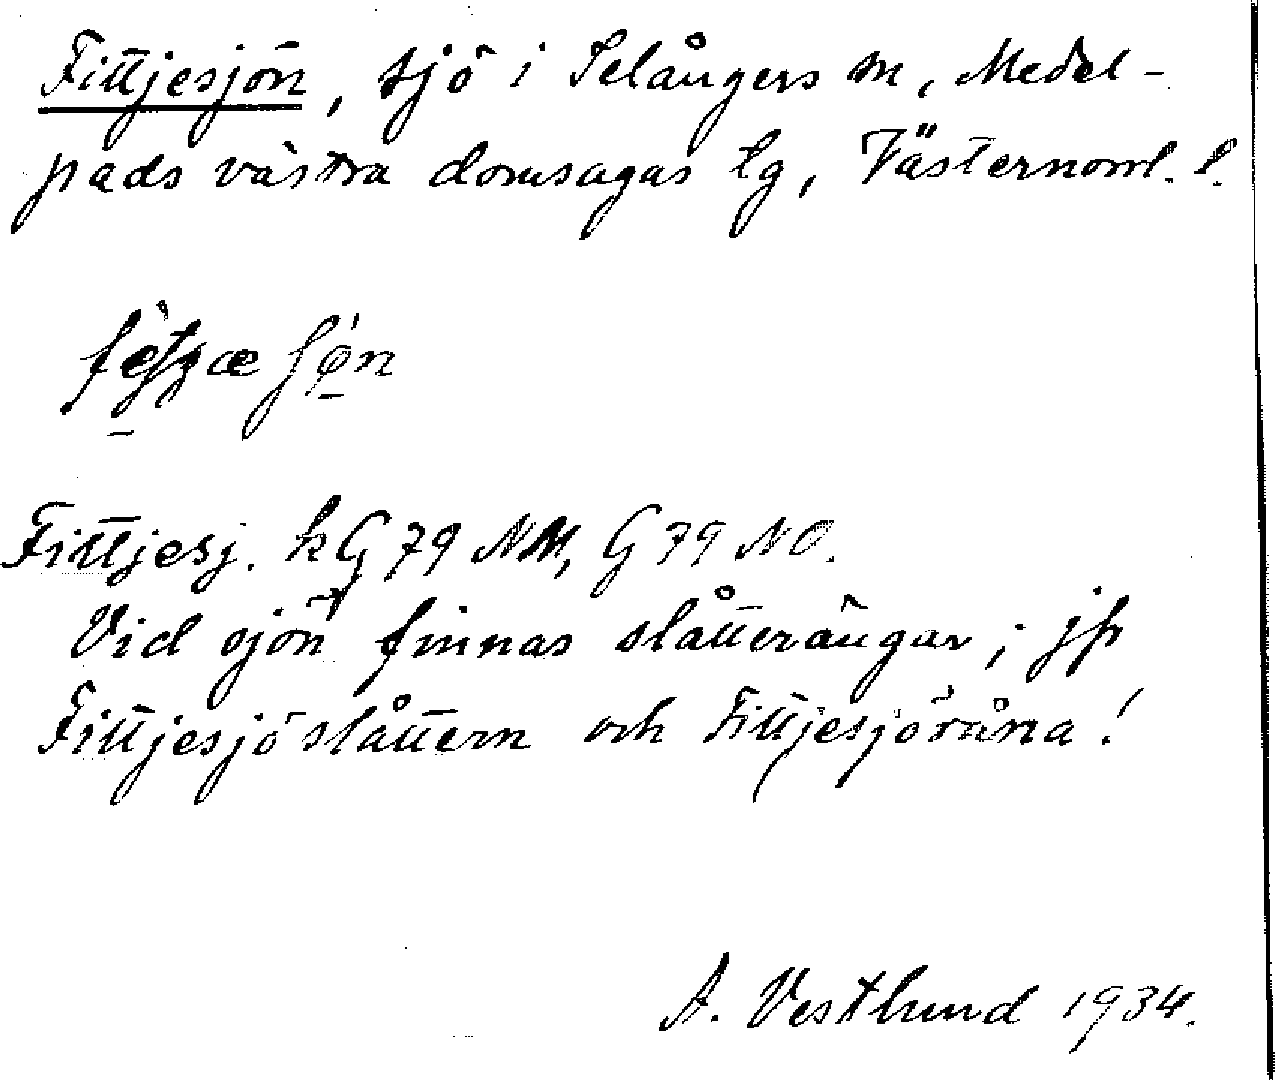 Fittjesjön, sjö i Selångers sn, Medel-
pads västra domsagas tg, Västernorrl. l.
Fittjesj. kG 79 NV, G 79 NO.
Vid sjön finnas slåtterängar; jfr
Fittjesjöslåttern och Fittjesjöråna!
A. Vestlund 1934.